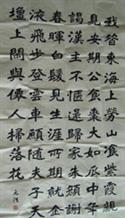 我昔東海上勞山餐紫霞親
見安期公食棗大如瓜中年
謁漢主不愜還歸家朱顏謝
春暉白髮見生涯所期就金
液飛步登雲車願隨夫子天
壇上閑與仙人掃落花